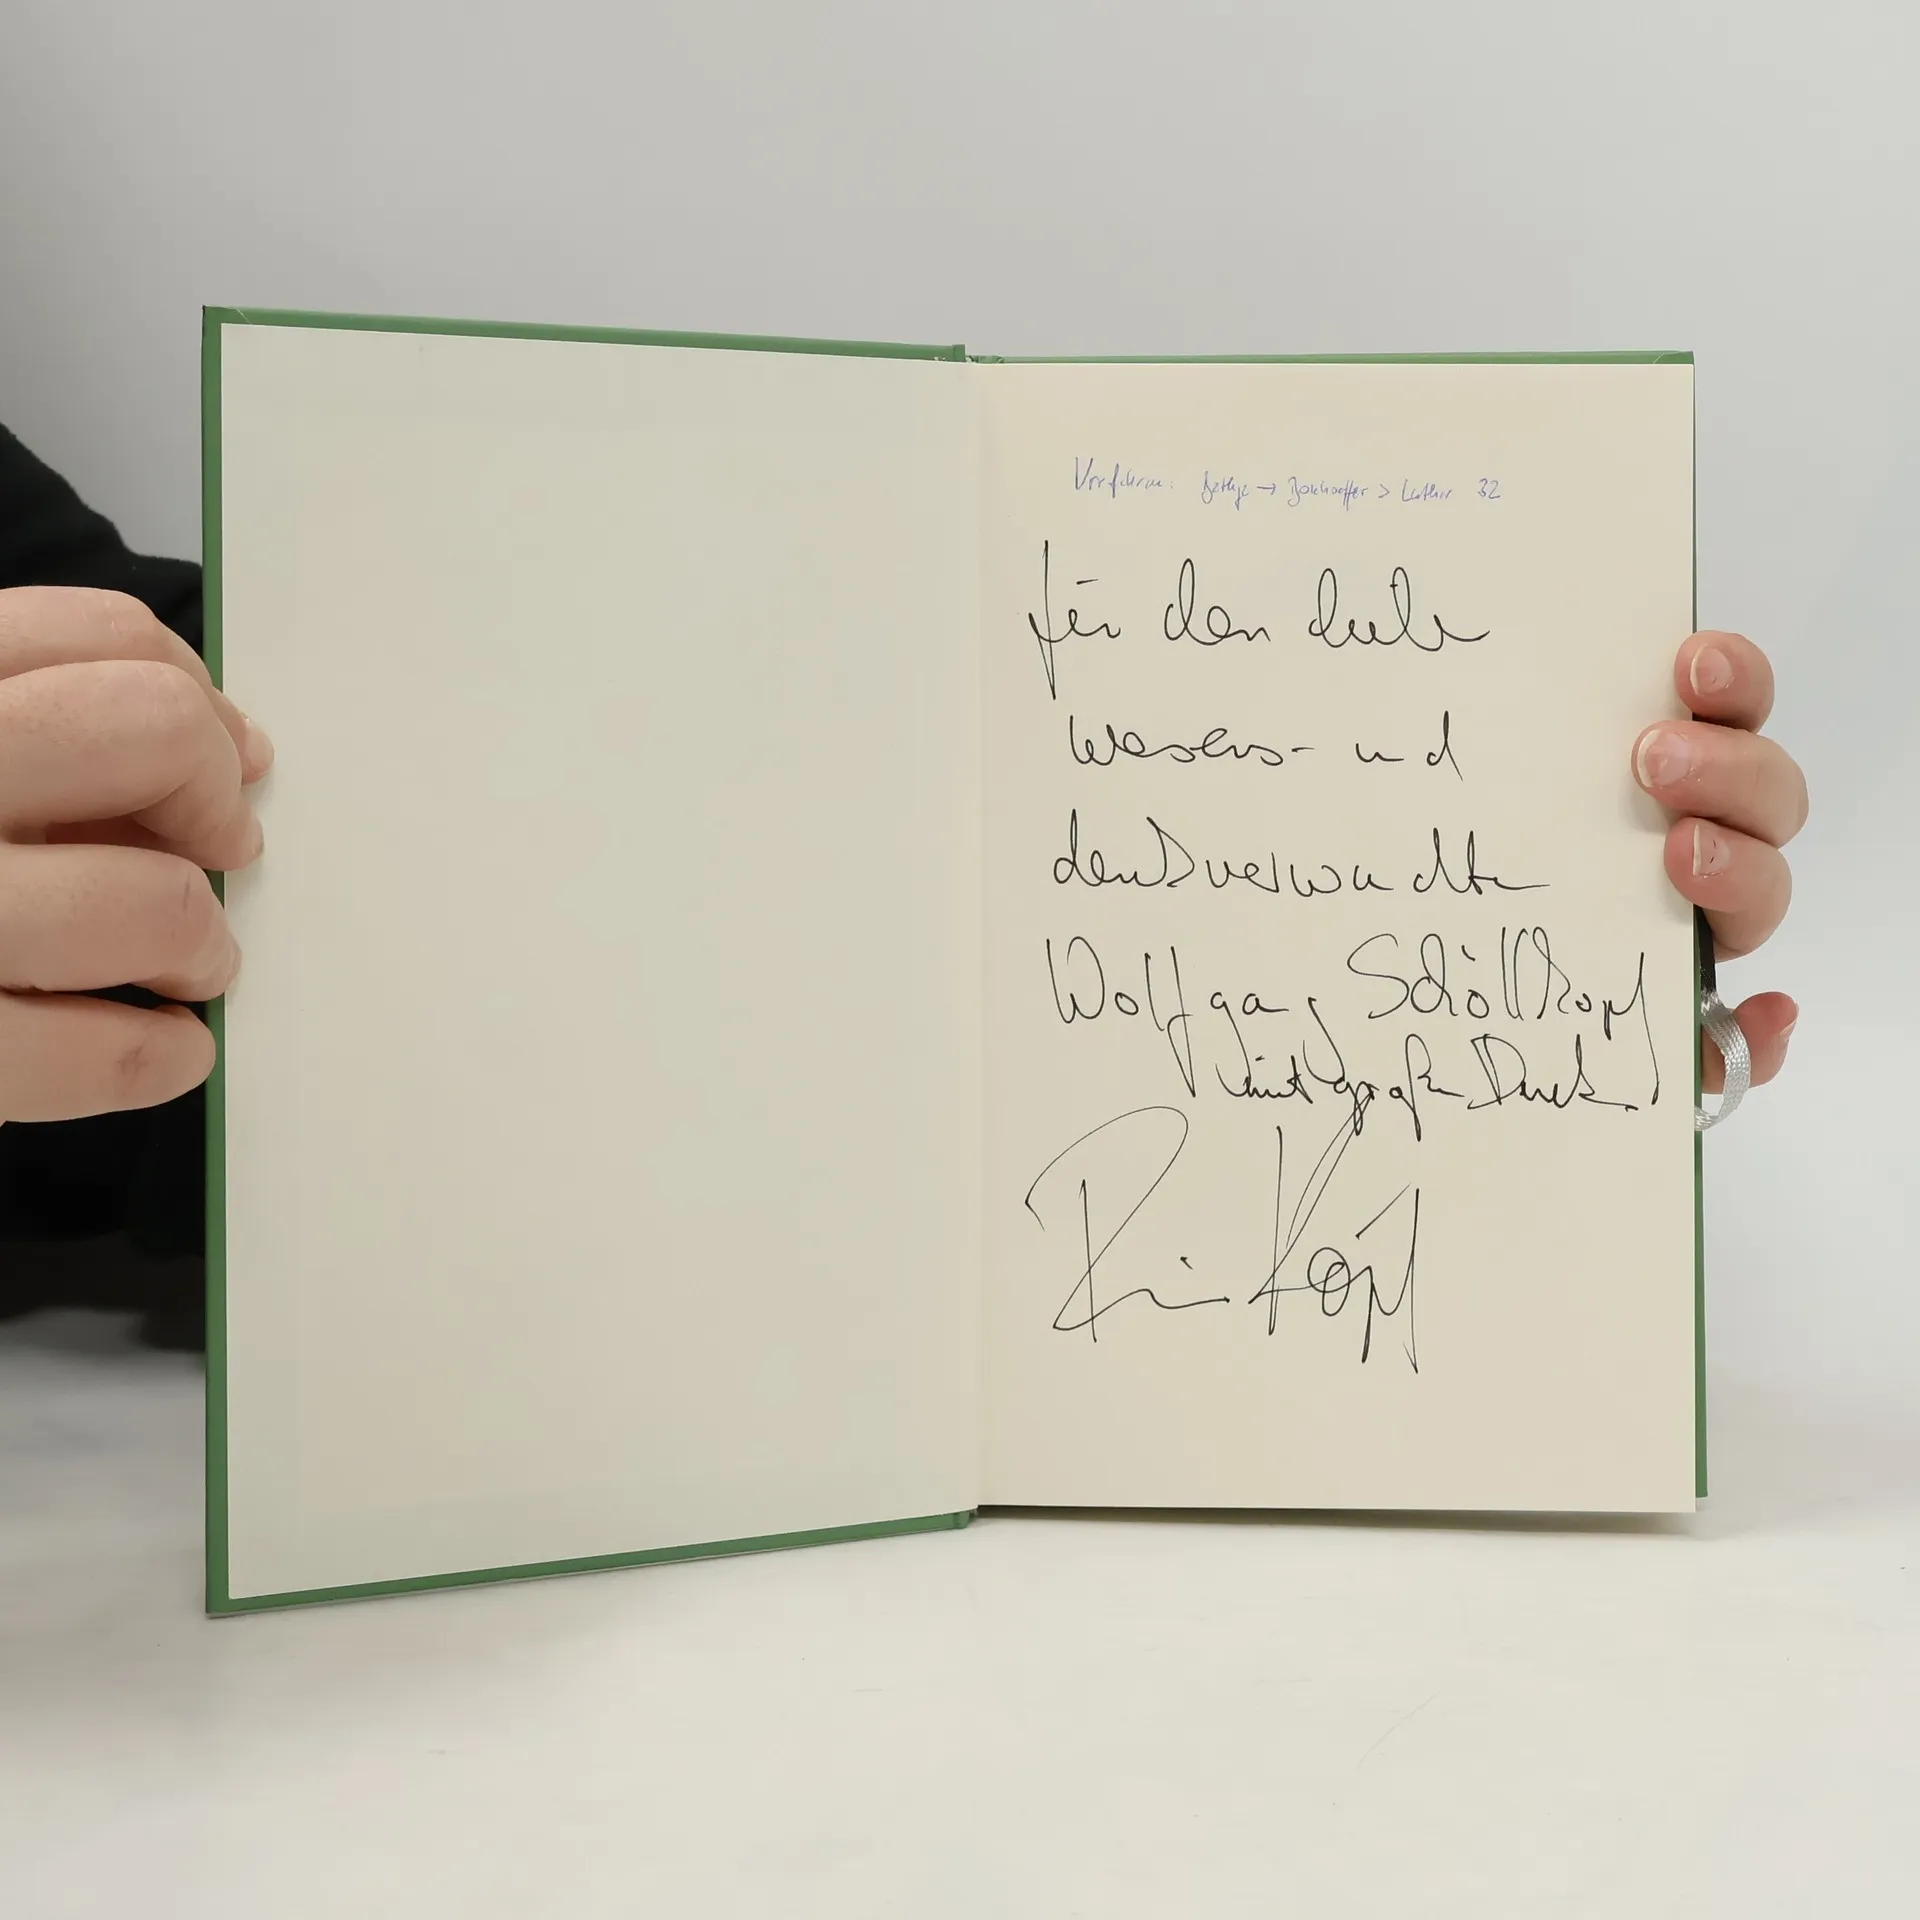 Vorfahren: Bethge → Bonhoeffer > Luther 32
für den liebe
wesens- und
denkverwandte
Wolfgang Schöllkopf
mit großem Dank
Kopf